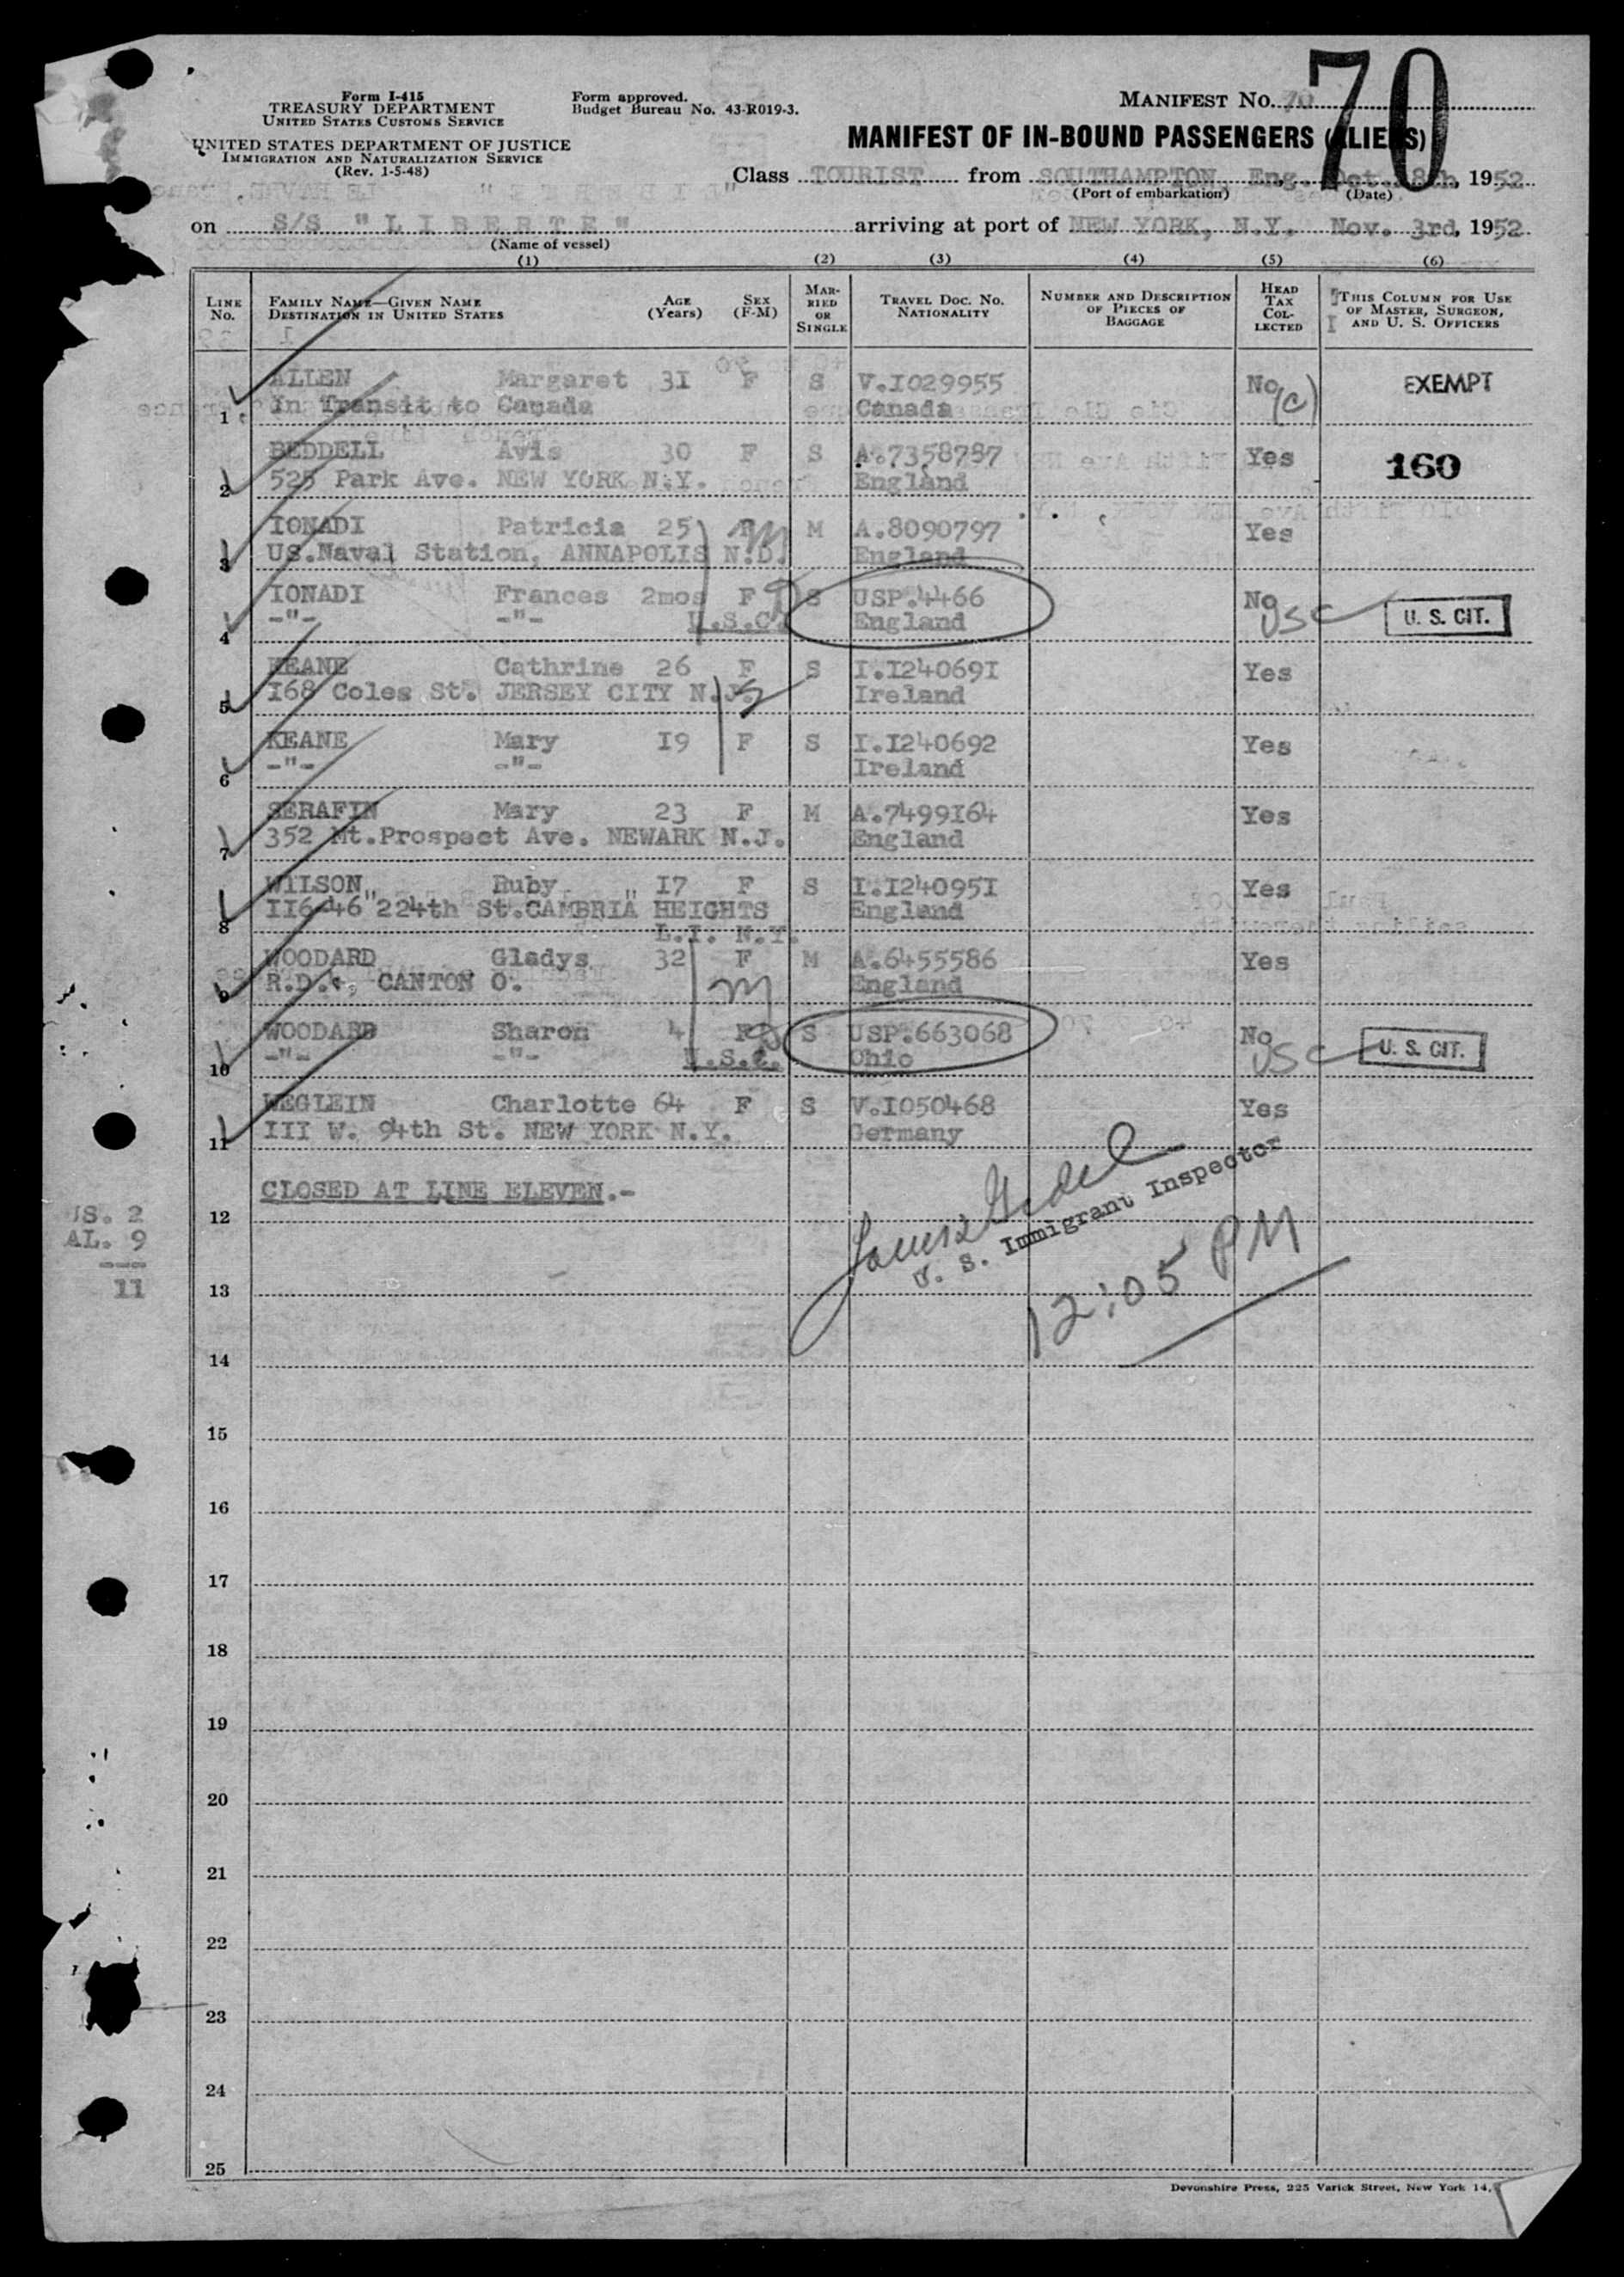 70
Form I-415
TREASURY DEPARTMENT
UNITED STATES CUSTOMS SERVICE
UNITED STATES DEPARTMENT OF JUSTICE
IMMIGRATION AND NATURALIZATION SERVICE
(Rev. 1-5-48)
Form approved.
Budget Bureau No. 43-R019-3.
MANIFEST NO. 70
MANIFEST OF IN-BOUND PASSENGERS (ALIENS)
Class TOURIST from SOUTHAMPTON, Eng. Oct. 28th, 1952
(Port of embarkation) (Date)
on S/S "LIBERTE" arriving at port of NEW YORK, N.Y. Nov. 3rd, 1952
(Name of vessel)
(1) (2) (3) (4) (5) (6)
LINE NO.
FAMILY NAME—GIVEN NAME
DESTINATION IN UNITED STATES
AGE (YEARS)
SEX (F-M)
MARRIED OR SINGLE
TRAVEL DOC. NO.
NATIONALITY
NUMBER AND DESCRIPTION OF PIECES OF BAGGAGE
HEAD TAX COLLECTED
THIS COLUMN FOR USE OF MASTER, SURGEON, AND U. S. OFFICERS
ALLEN Margaret 31 F S V.1029955 No (c) EXEMPT
1 In Transit to Canada Canada
BEDDELL Avis 30 F S A.7358787 Yes 160
2 525 Park Ave. NEW YORK N.Y. England
IONADI Patricia 25 F m M A.8090797 Yes
3 US.Naval Station, ANNAPOLIS N.D. England
IONADI Frances 2mos F S USP.4466 No USC U. S. CIT.
4 -"- -"- U.S.C. England
KEANE Cathrine 26 F S I.I240691 Yes
5 168 Coles St. JERSEY CITY N.J. S Ireland
KEANE Mary I9 F S I.I240692 Yes
6 -"- -"- Ireland
SERAFIN Mary 23 F M A.7499I64 Yes
7 352 Mt.Prospect Ave. NEWARK N.J. England
WILSON Ruby I7 F S I.I24095I Yes
8 II6-46"224th St.CAMBRIA HEIGHTS England
L.I. N.Y.
WOODARD Gladys 32 F M A.6455586 Yes
9 R.D.4, CANTON O. m England
WOODARD Sharon 4 F S USP.663068 No USC U. S. CIT.
10 -"- -"- U.S.C. Ohio
WEGLEIN Charlotte 64 F S V.I050468 Yes
11 III W. 94th St. NEW YORK N.Y. Germany
CLOSED AT LINE ELEVEN.-
US. 2
AL. 9
---
11
U. S. Immigrant Inspector
12:05 PM
12
13
14
15
16
17
18
19
20
21
22
23
24
25
Devonshire Press, 225 Varick Street, New York 14,